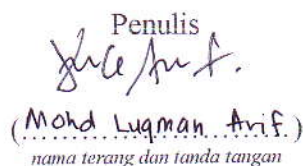 Penulis
(Mohd Luqman Arif.)
nama terang dan tanda tangan